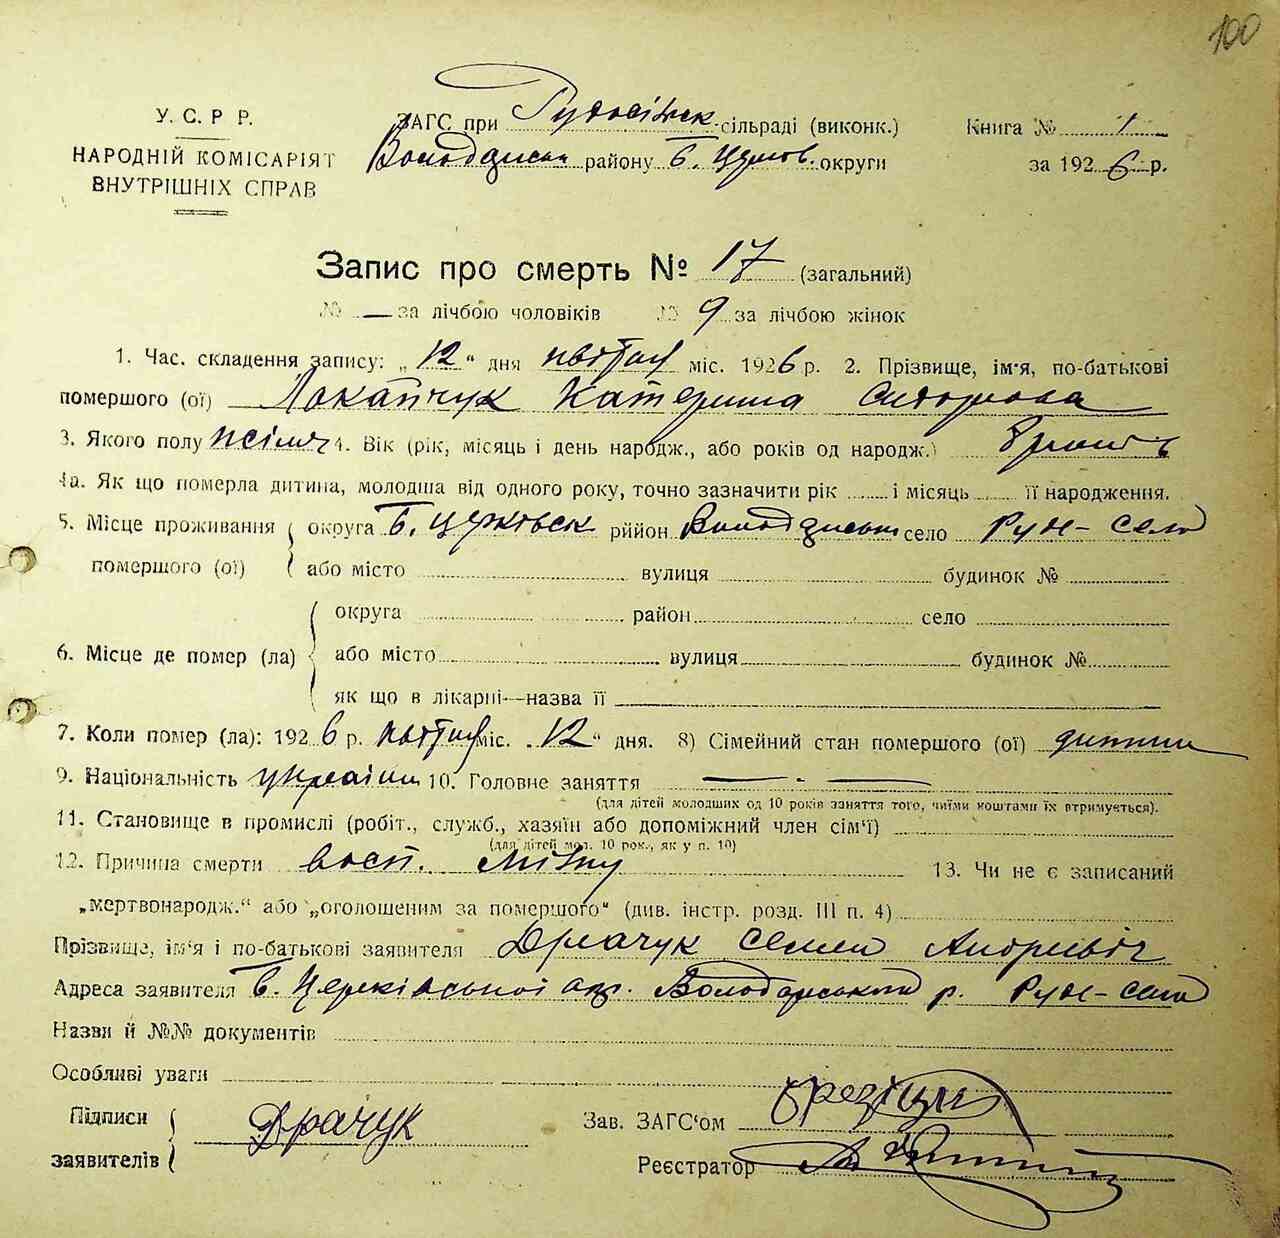 100
У. С. Р Р.
НАРОДНІЙ КОМІСАРІЯТ
ВНУТРІШНІХ СПРАВ
ЗАГС при сільраді (виконк.)
Володарськ району Б. Церков. округи
Книга № 1
за 1926 р.
Запис про смерть № 17 (загальний)
№ — за лічбою чоловіків № 9 за лічбою жінок
1. Час складення запису: „12“ дня міс. 1926 р. 2. Прізвище, ім'я, по-батькові
помершого (ої) Локатчук Катерина Сидорова
3. Якого полу жіноч 4. Вік (рік, місяць і день народж., або років од народж.)
4а. Як що померла дитина, молодша від одного року, точно зазначити рік і місяць її народження.
5. Місце проживання помершого (ої) округа Б. Церковськ рийон Володарськ село Руд-село
або місто вулиця будинок №
6. Місце де помер (ла) округа район село
або місто вулиця будинок №
як що в лікарні—назва її
7. Коли помер (ла): 1926 р. міс. „12“ дня. 8) Сімейний стан помершого (ої) дитина
9. Національність україн 10. Головне заняття — . —
(для дітей молодших од 10 років заняття того, чиїми коштами їх втримується).
11. Становище в промислі (робіт., служб., хазяїн або допоміжний член сім'ї)
(для дітей мол. 10 рок., як у п. 10)
12. Причина смерти восп. 13. Чи не є записаний
„мертвонародж.“ або „оголошеним за помершого“ (див. інстр. розд. III п. 4)
Прізвище, ім'я і по-батькові заявителя Драчук Семен Андрієвіч
Адреса заявителя Б. Церківської окр. Володарський р. Руд-село
Назви й №№ документів
Особливі уваги
Підписи заявителів Драчук
Зав. ЗАГС'ом
Реєстратор